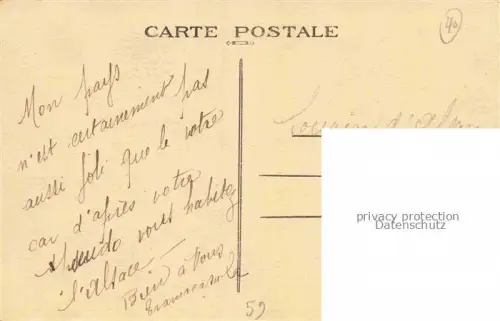 CARTE POSTALE
40
Mon pays
n'est certainement pas
aussi joli que le votre
car d'après votre
vous habitez
l'Alsace —
Bien à Vous
Souvenir d'
privacy protection
Datenschutz
59